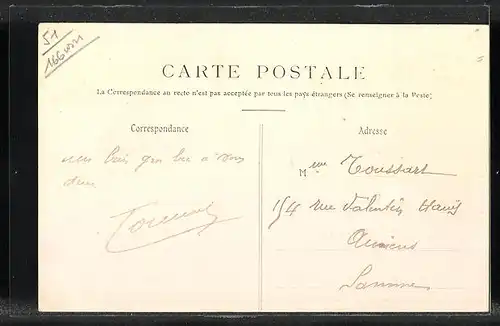 51
CARTE POSTALE
La Correspondance au recto n'est pas acceptée par tous les pays étrangers (Se renseigner à la Poste)
Correspondance
Adresse
un bais à vous
deux
Mme Toussart
154 rue Valentin Haüy
Amiens
Somme